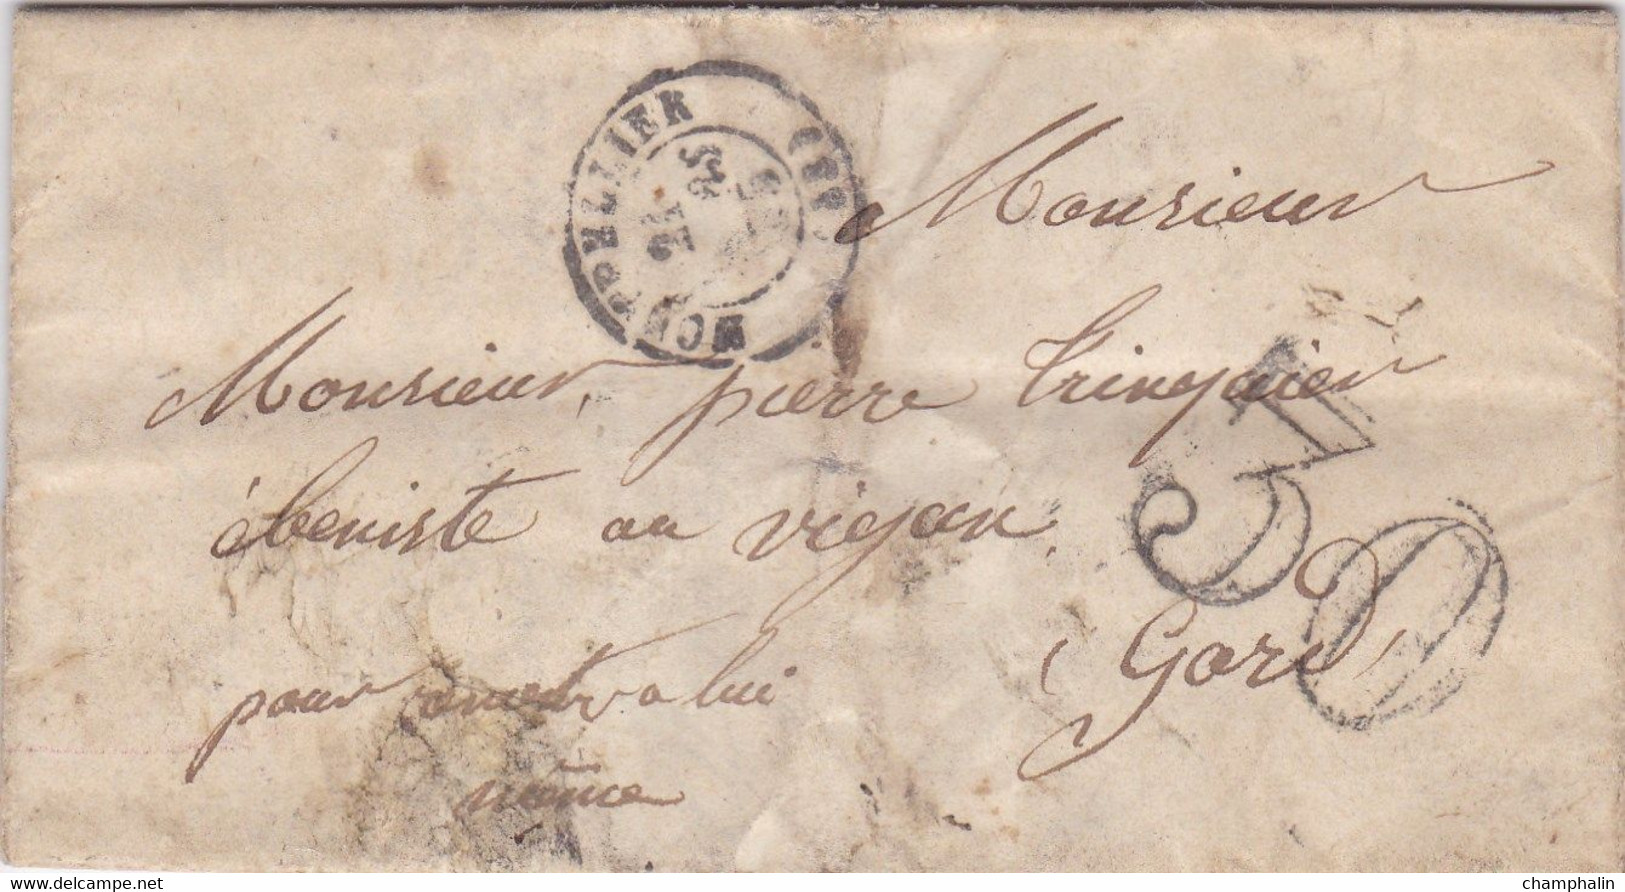 MONTPELLIER
Monsieur
Monsieur pierre tringuier
ébeniste au vigan
(Gard)
pour remetre a lui
même
30
www.delcampe.net
champhalin